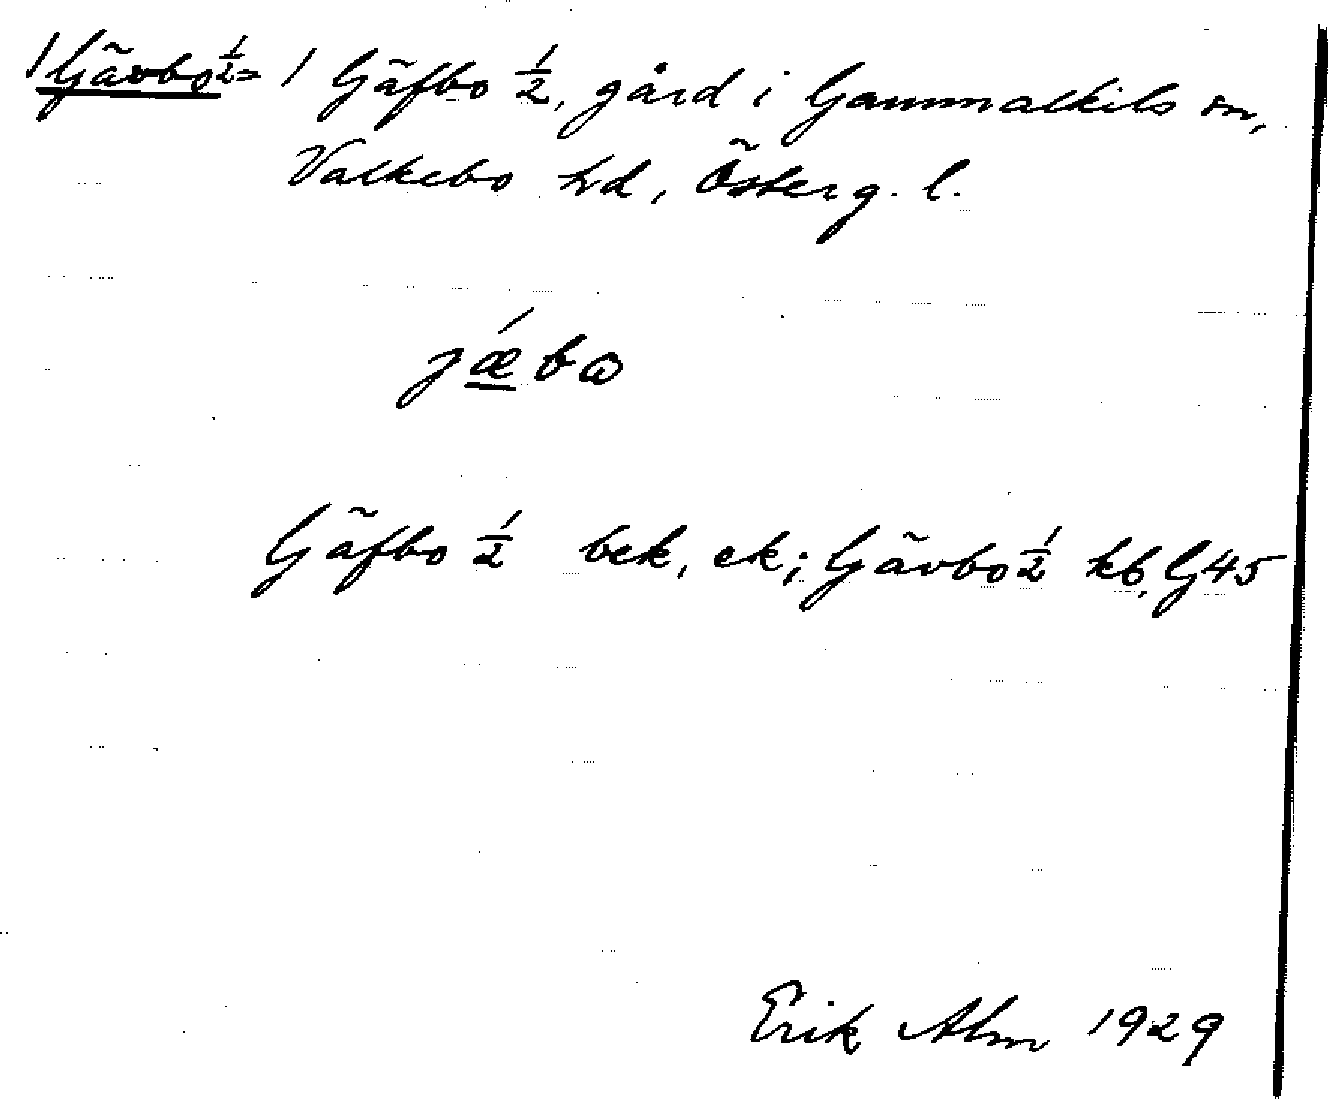 1 Gävbo ½ = 1 Gäfbo ½, gård i Gammalkils sn,
Valkebo hd, Österg. l.
jǽbo
Gäfbo ½ bek, ek; Gävbo ½ kb, G45
Erik Alm 1929